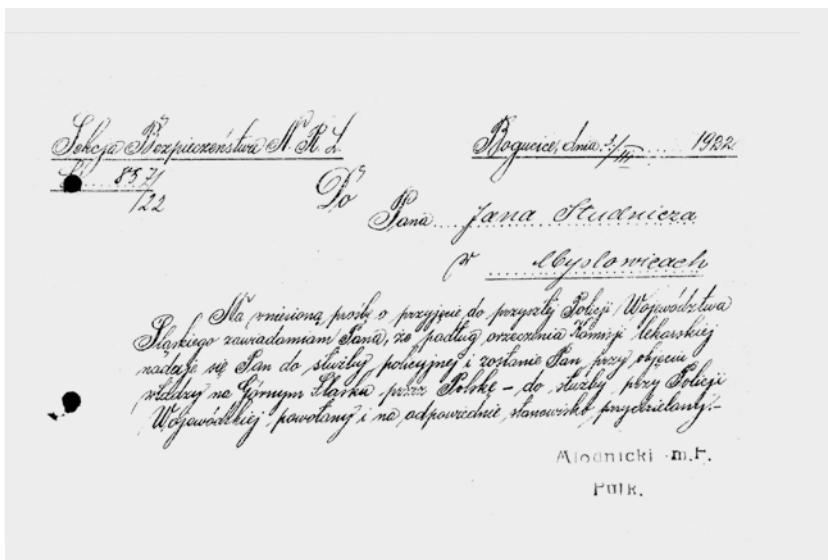 Sekcja Bezpieczeństwa N. R. L.
Bogucice, dnia 2/III 1922
L. 857/
/22
Do
Pana Jana Studnicza
w Mysłowicach
Na wniesioną prośbę o przyjęcie do przyszłej Policji Województwa
Śląskiego zawiadamiam Pana, że podług orzeczenia Komisji lekarskiej
nadaje się Pan do służby policyjnej i zostanie Pan, przy objęciu
władzy na Górnym Śląsku przez Polskę – do służby przy Policji
Wojewódzkiej powołany i na odpowiednie stanowisko przydzielany.–
Młodnicki m.P.
Pułk.